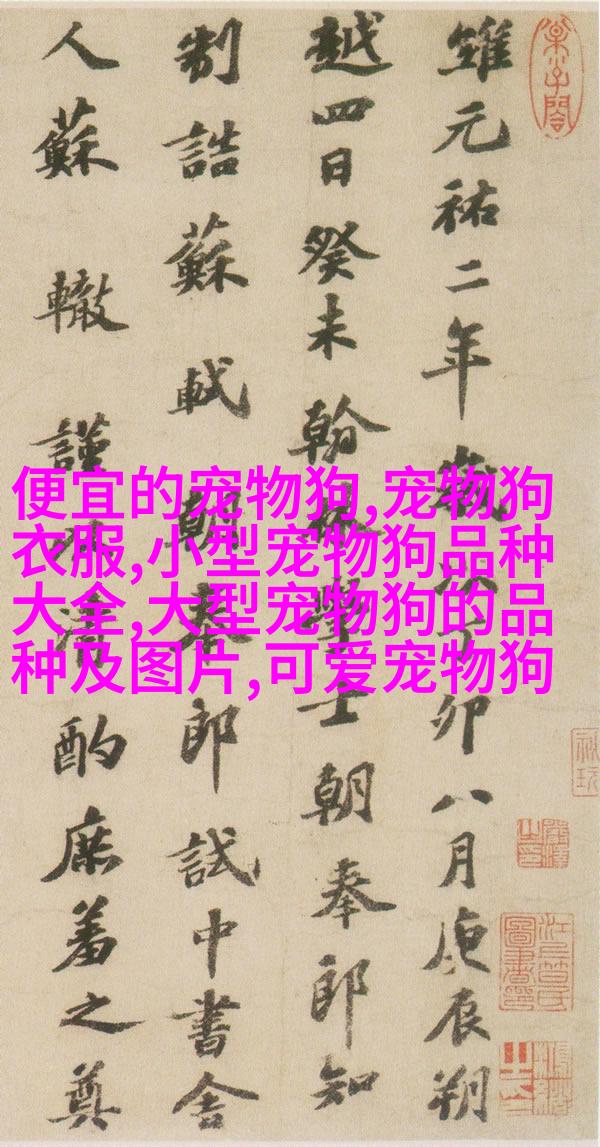 維元祐二年歲次丁卯八月庚辰朔
越四日癸未翰林學士朝奉郎知
制誥蘇軾朝奉郎試中書舍
人蘇轍謹以清酌庶羞之奠
便宜的宠物狗,宠物狗
衣服,小型宠物狗品种
大全,大型宠物狗的品
种及图片,可爱宠物狗